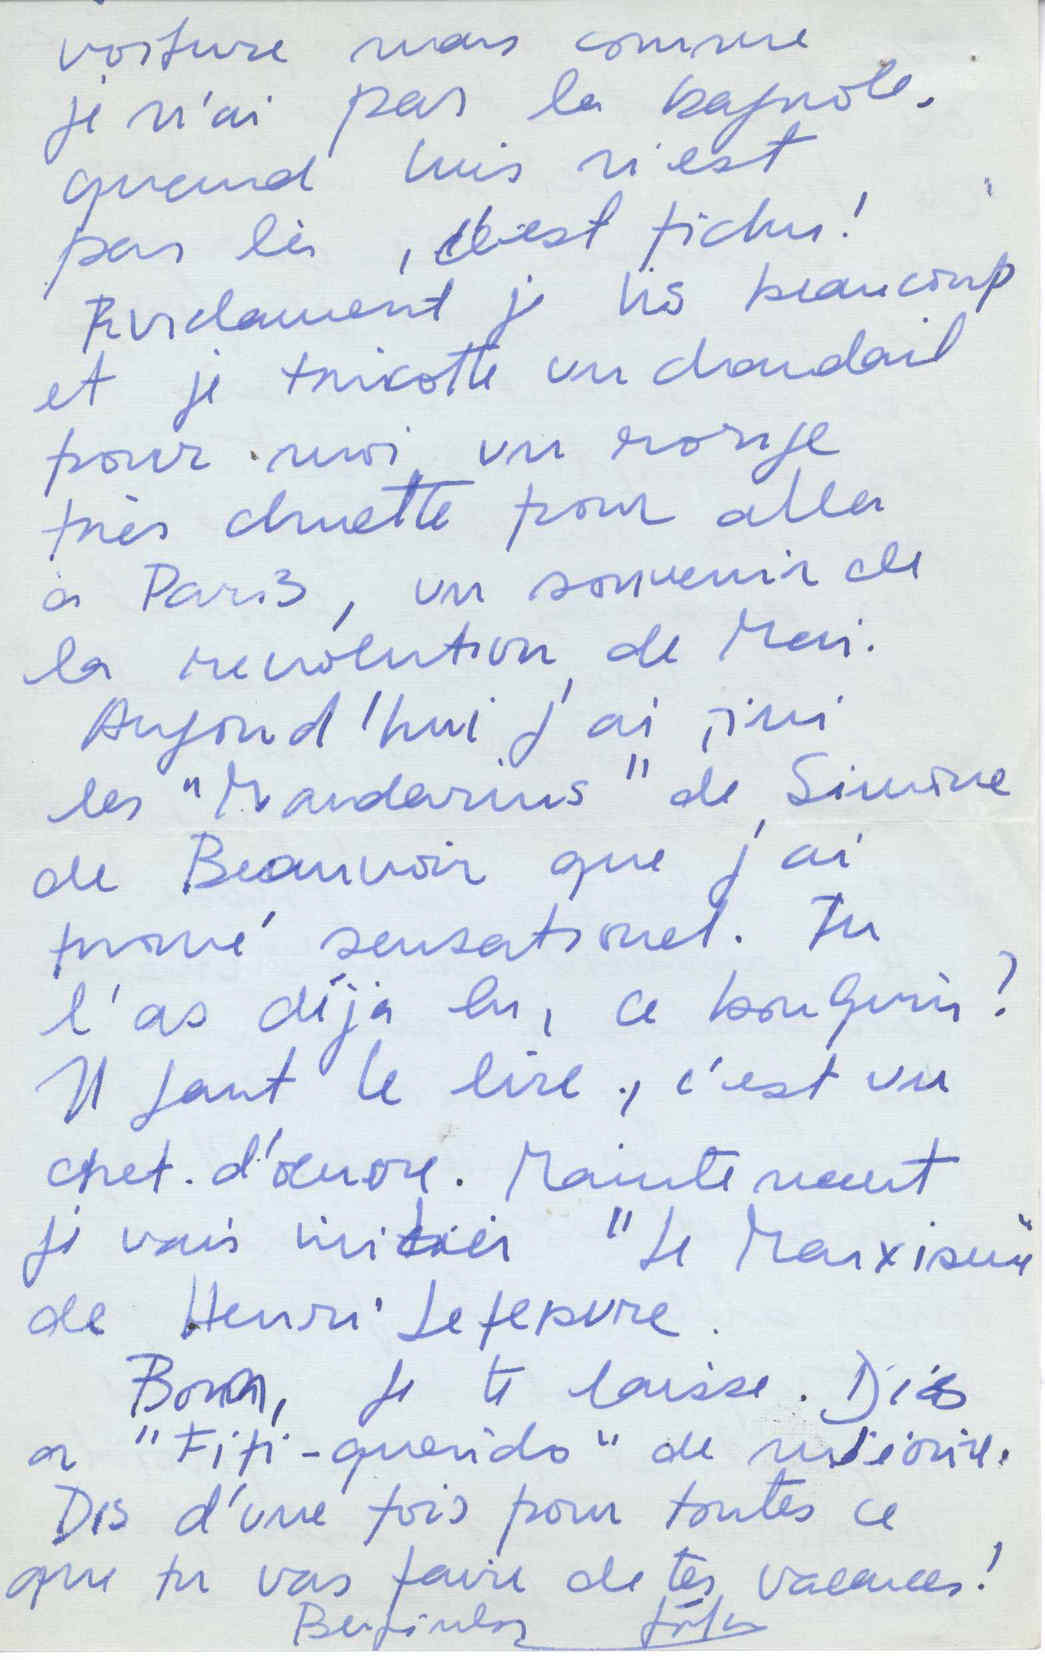 voiture mais comme
je n'ai pas la bagnole.
quand Luis n'est
pas là, c'est fichu!
Evidamment je lis beaucoup
et je tricotte un chandail
pour moi, un rouge
très chuette pour aller
à Paris, un souvenir de
la revolution de Mai.
Aujourd'hui j'ai fini
les "Mandarins" de Simone
de Beauvoir que j'ai
trouvé sensationel. Tu
l'as déja lu, ce bouquin?
Il faut le lire, c'est un
chef-d'œuvre. Maintenant
je vais initier "Le Marxisme"
de Henri Lefebvre.
Bon, je te laisse. Dis
a "Fifi-querido" de m'écrire.
Dis d'une fois pour toutes ce
que tu vas faire de tes vacances!